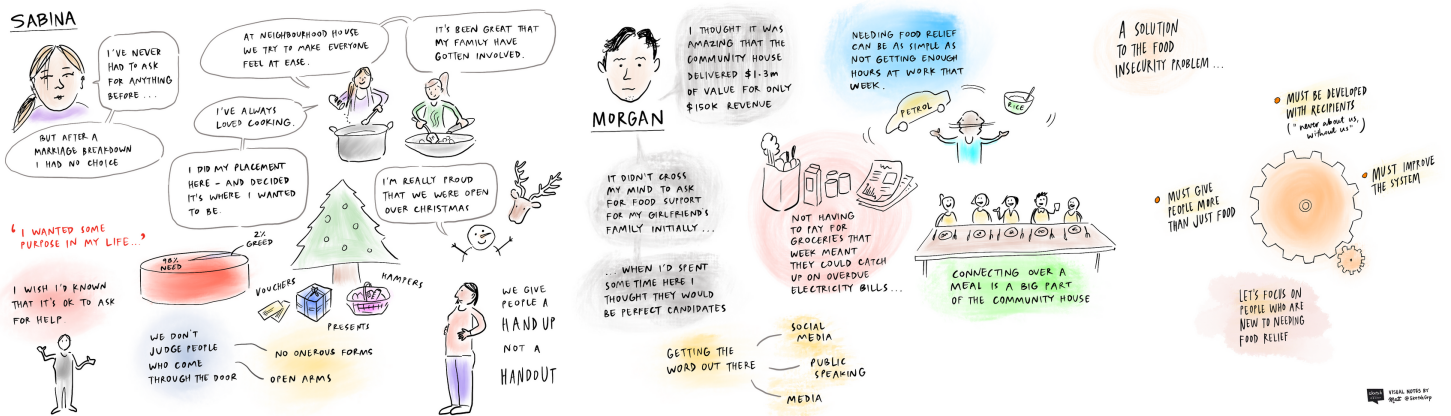 SABINA
I'VE NEVER
HAD TO ASK
FOR ANYTHING
BEFORE ...
BUT AFTER A
MARRIAGE BREAKDOWN
I HAD NO CHOICE
AT NEIGHBOURHOOD HOUSE
WE TRY TO MAKE EVERYONE
FEEL AT EASE.
IT'S BEEN GREAT THAT
MY FAMILY HAVE
GOTTEN INVOLVED.
I'VE ALWAYS
LOVED COOKING.
I DID MY PLACEMENT
HERE - AND DECIDED
IT'S WHERE I WANTED
TO BE.
I'M REALLY PROUD
THAT WE WERE OPEN
OVER CHRISTMAS
"I WANTED SOME
PURPOSE IN MY LIFE..."
2%
GREED
98%
NEED
I WISH I'D KNOWN
THAT IT'S OK TO ASK
FOR HELP
VOUCHERS
HAMPERS
PRESENTS
WE DON'T
JUDGE PEOPLE
WHO COME
THROUGH THE DOOR
NO ONEROUS FORMS
OPEN ARMS
WE GIVE
PEOPLE A
HAND UP
NOT A
HANDOUT
MORGAN
I THOUGHT IT WAS
AMAZING THAT THE
COMMUNITY HOUSE
DELIVERED $1.3m
OF VALUE FOR ONLY
$150K REVENUE
IT DIDN'T CROSS
MY MIND TO ASK
FOR FOOD SUPPORT
FOR MY GIRLFRIENDS
FAMILY INITIALLY ...
... WHEN I'D SPENT
SOME TIME HERE I
THOUGHT THEY WOULD
BE PERFECT CANDIDATES
NEEDING FOOD RELIEF
CAN BE AS SIMPLE AS
NOT GETTING ENOUGH
HOURS AT WORK THAT
WEEK.
PETROL
RICE
NOT HAVING
TO PAY FOR
GROCERIES THAT
WEEK MEANT
THEY COULD CATCH
UP ON OVERDUE
ELECTRICITY BILLS...
CONNECTING OVER A
MEAL IS A BIG PART
OF THE COMMUNITY HOUSE
GETTING THE
WORD OUT THERE
SOCIAL
MEDIA
PUBLIC
SPEAKING
MEDIA
A SOLUTION
TO THE FOOD
INSECURITY PROBLEM ...
MUST BE DEVELOPED
WITH RECIPIENTS
("never about us,
without us")
MUST IMPROVE
THE SYSTEM
MUST GIVE
PEOPLE MORE
THAN JUST FOOD
LET'S FOCUS ON
PEOPLE WHO ARE
NEW TO NEEDING
FOOD RELIEF
VISUAL NOTES BY